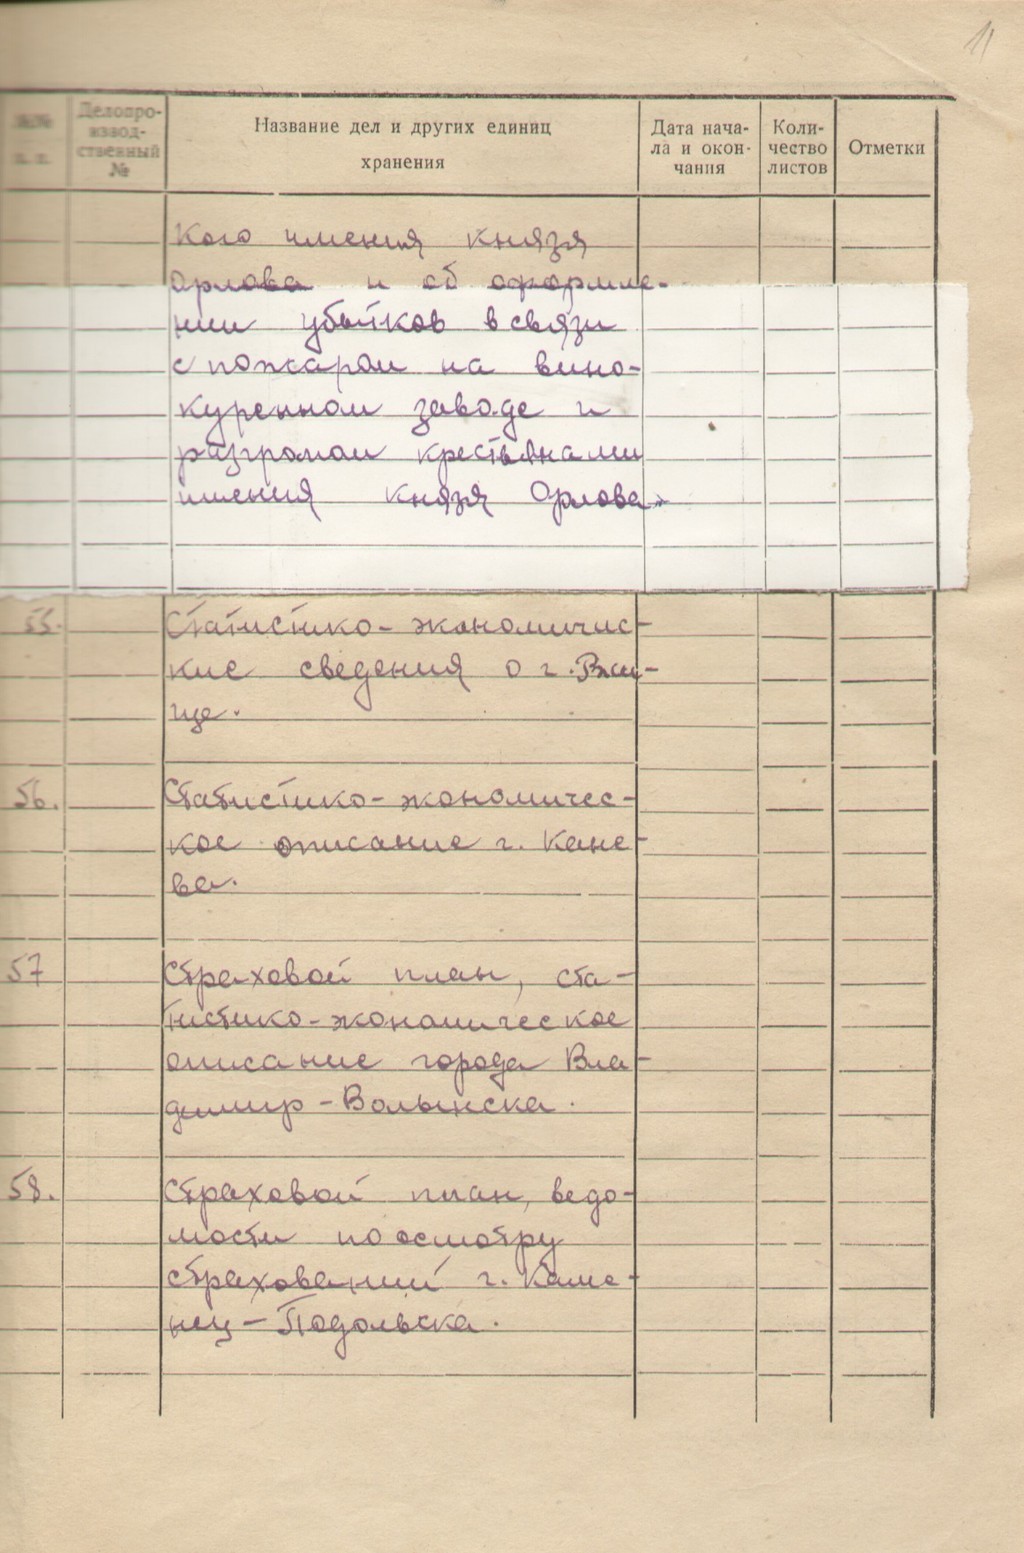 11
№№ п. п.
Делопро-
извод-
ственный
№
Название дел и других единиц
хранения
Дата нача-
ла и окон-
чания
Коли-
чество
листов
Отметки
кого имения князя
Орлова и об оформле-
нии убытков в связи
с пожаром на вино-
куренном заводе и
разгромом крестьянами
имения князя Орлова»
55. Статистико-экономичес-
кие сведения о г.
це.
56. Статистико-экономичес-
кое описание г. Кане-
ва.
57 Страховой план, ста-
тистико-экономическое
описание города Вла-
димир-Волынска.
58. Страховой план, ведо-
мости по осмотру
страхований г. Каме-
нец-Подольска.